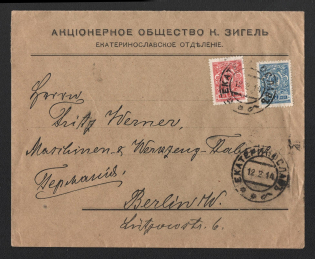 АКЦІОНЕРНОЕ ОБЩЕСТВО К. ЗИГЕЛЬ
ЕКАТЕРИНОСЛАВСКОЕ ОТДѢЛЕНІЕ.
Herrn
Fritz Werner,
Maschinen & Werkzeug-Fabrik
Германія.
Berlin W.
Lützowstr. 6.
ЕКАТЕРИНОСЛАВЪ
12.2.14